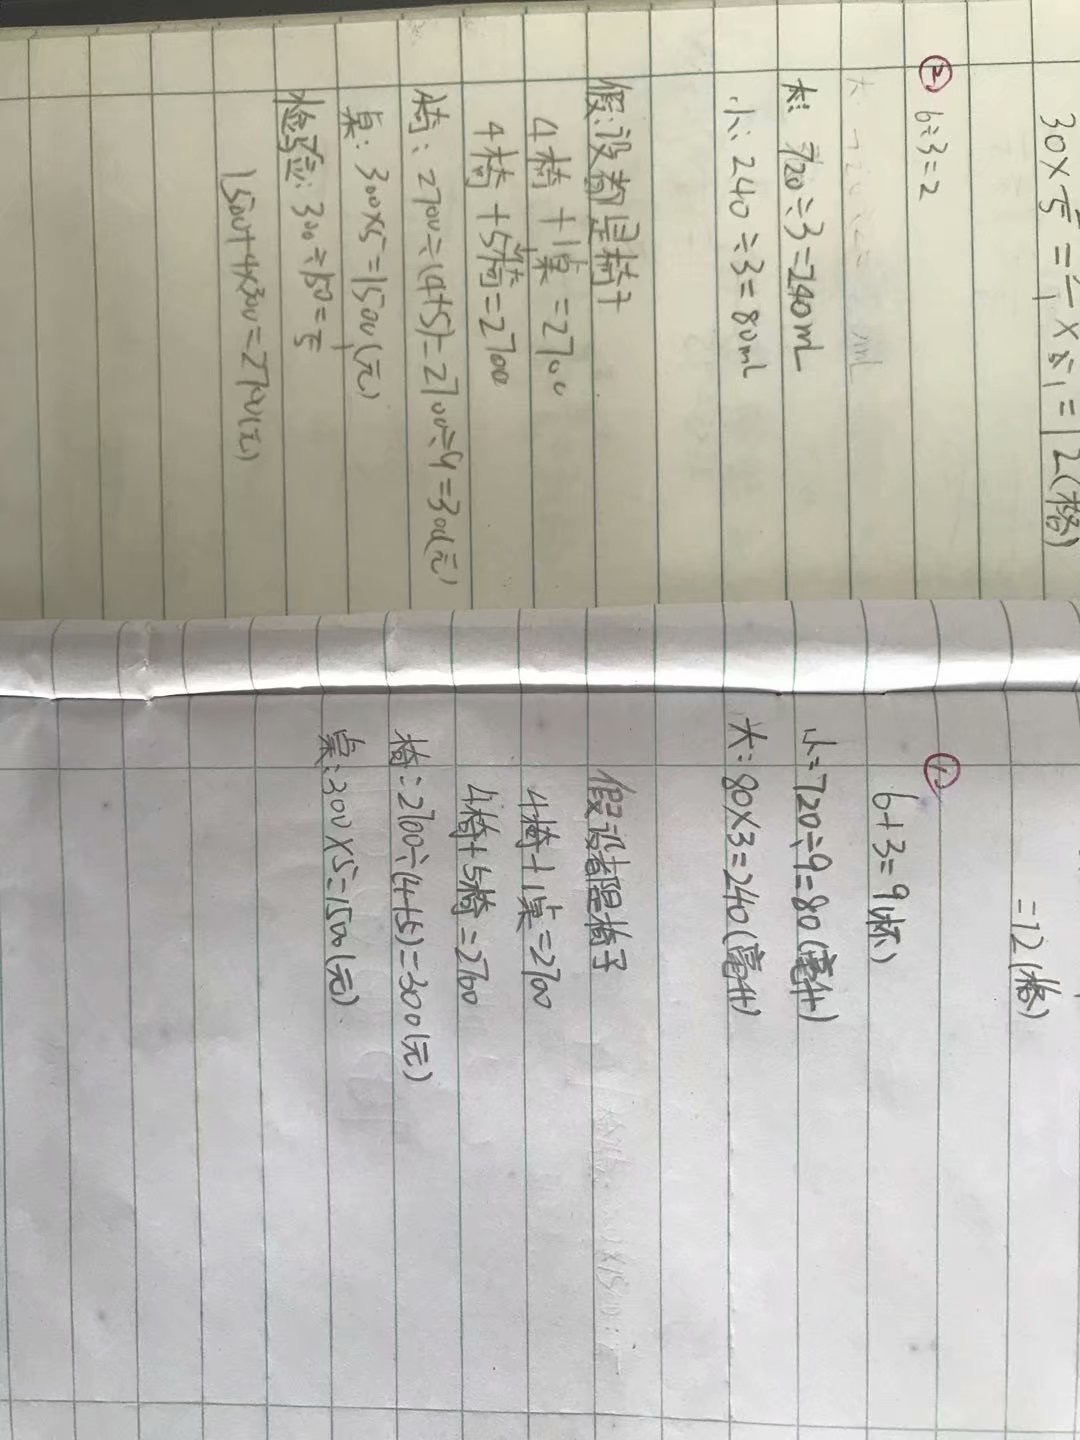 30×
=12(格)
②
6÷3=2
大: 720÷3=240mL
小: 240÷3=80mL
假设都是椅子
4椅+1桌=2700
4椅+5椅=2700
椅: 2700÷(4+5)=2700÷9=300(元)
桌: 300×5=1500(元)
检验: 300÷1500=
1500+4×300=2700(元)
=12(格)
①
6+3=9(杯)
小=720÷9=80(毫升)
大: 80×3=240(毫升)
假设都是椅子
4椅+1桌=2700
4椅+5椅=2700
椅: 2700÷(4+5)=300(元)
桌: 300×5=1500(元)